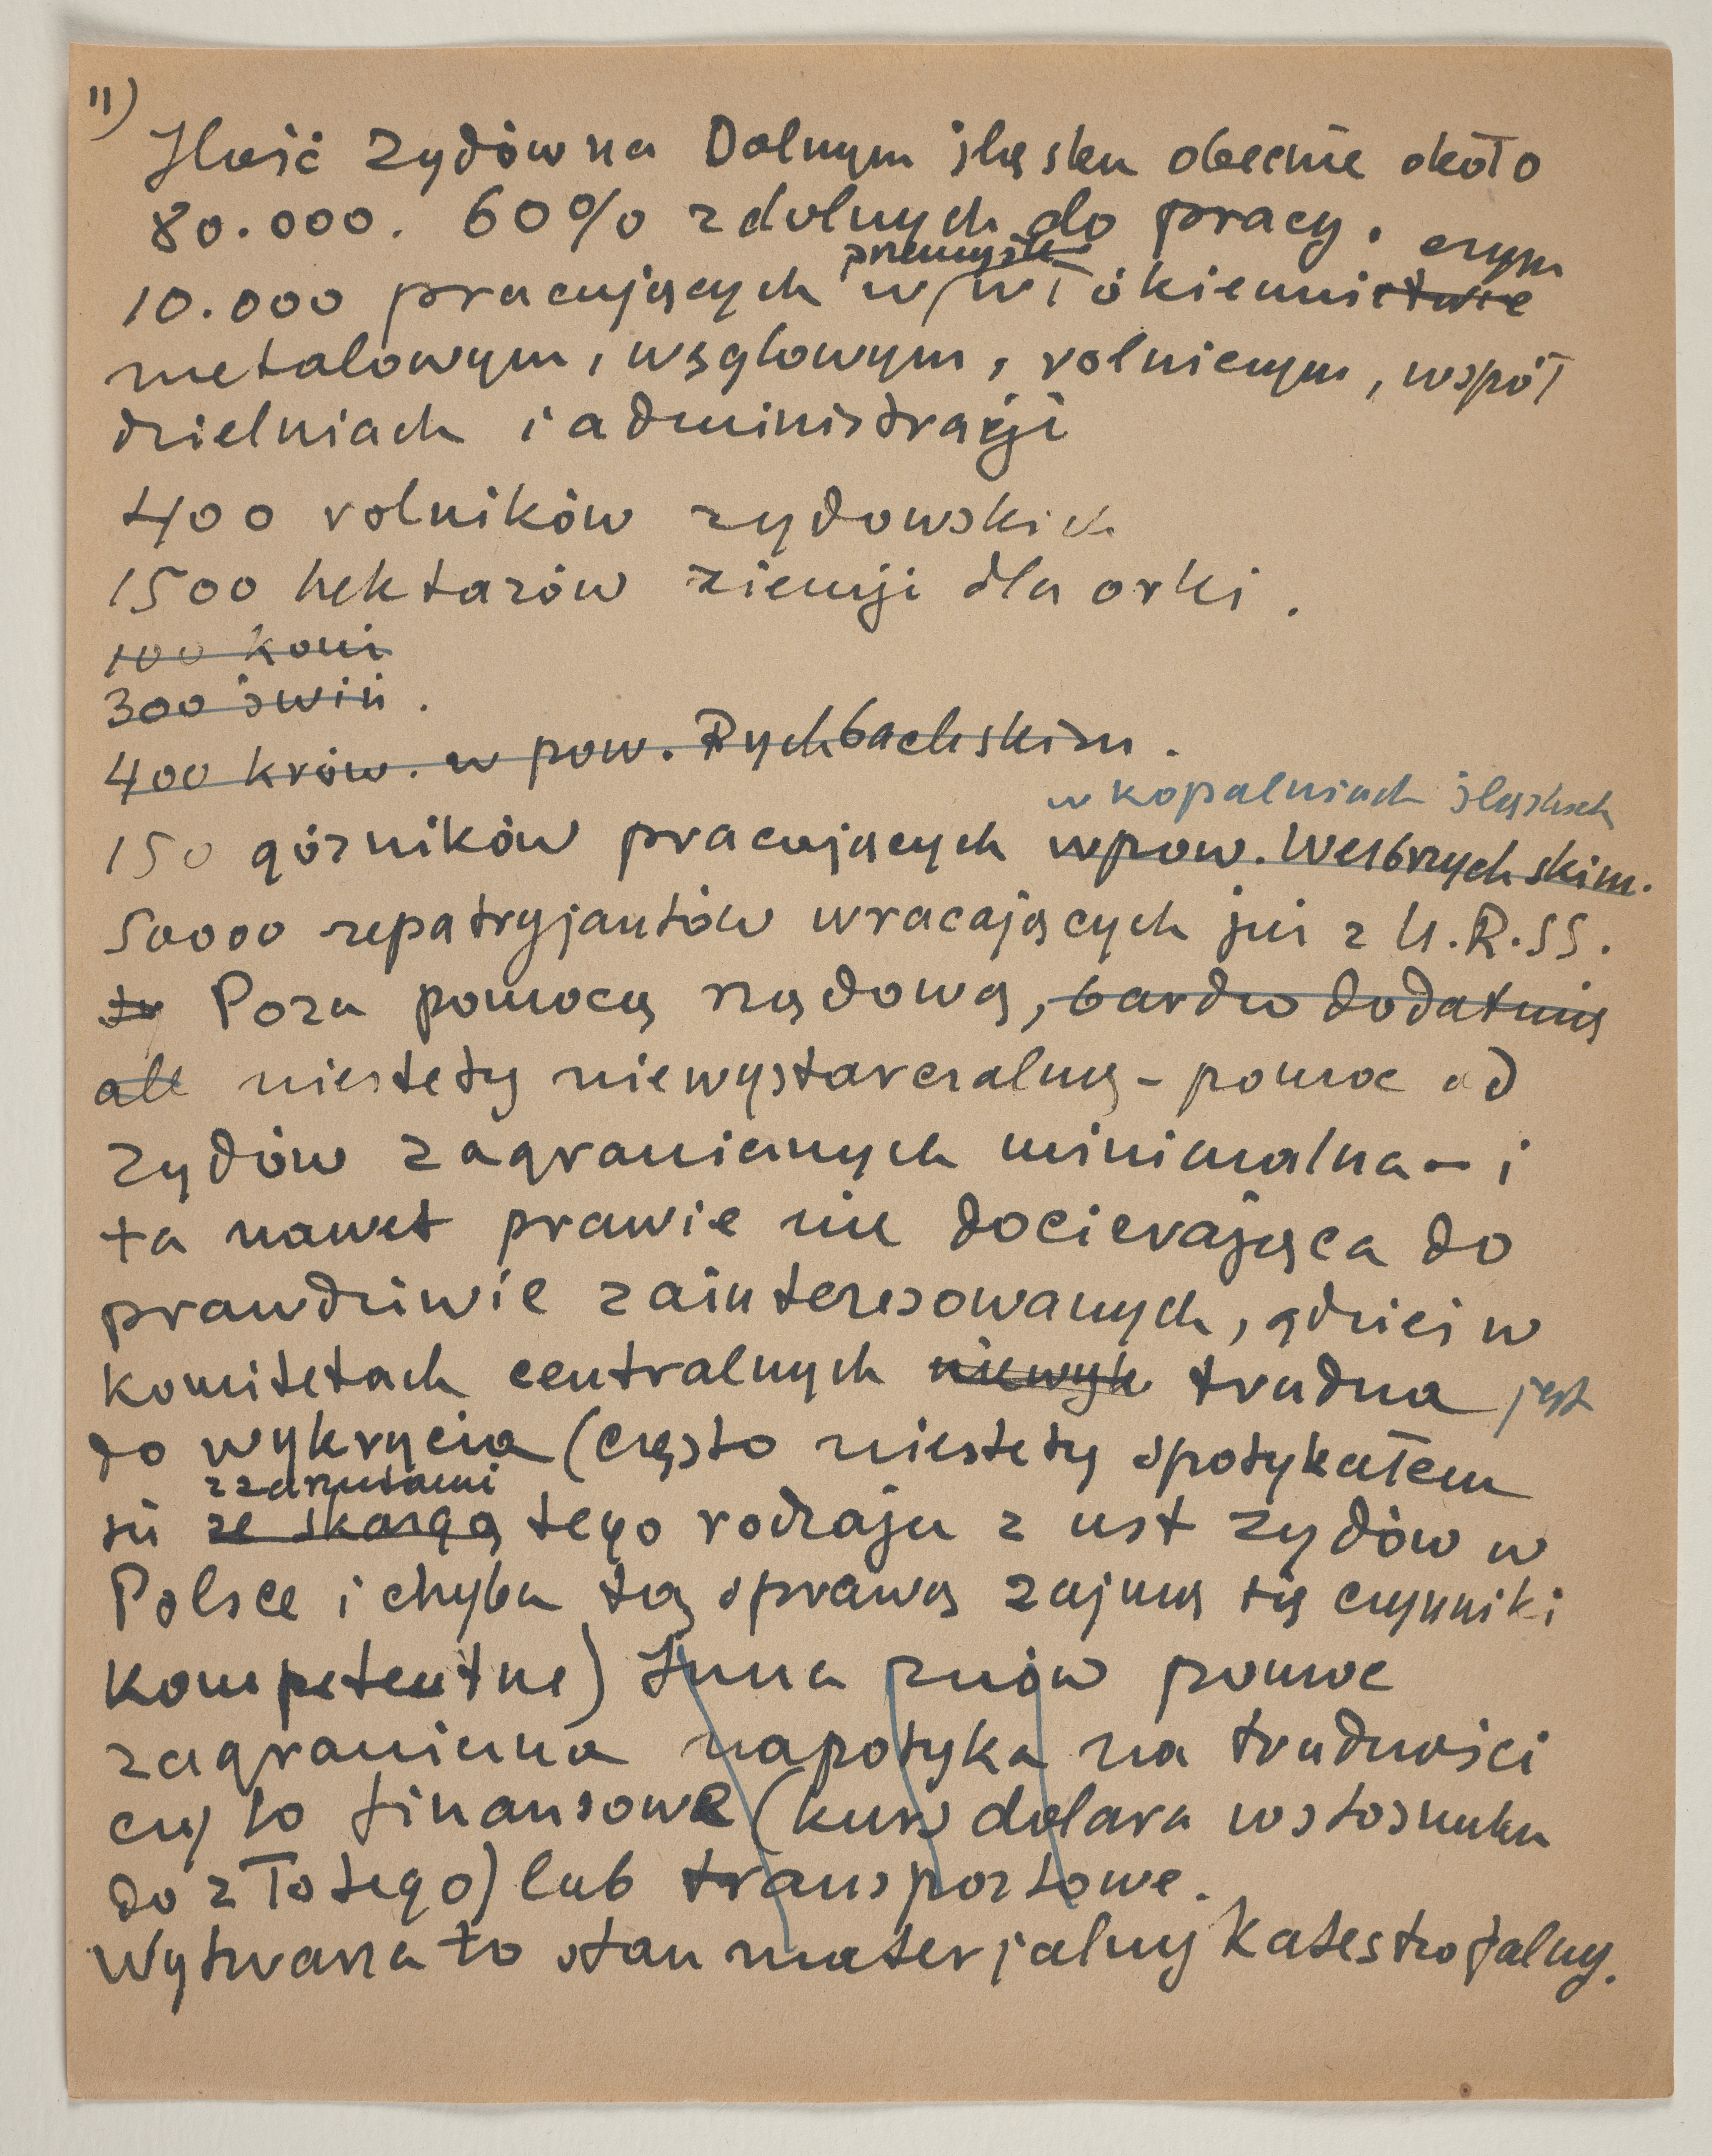 11)
Ilość Zydów na Dolnym śląsku obecnie około
80.000. 60% zdolnych do pracy.
10.000 pracujących w przemyśle włókiennictwie czym
metalowym, węglowym, rolniczym, współ
dzielniach i administracji
400 rolników zydowskich
1500 hektarów ziemji dla orki.
100 koni
300 świń.
400 krów. w pow. Rychbachskim.
w kopalniach śląskich
150 górników pracujących w pow. Walbrzychskim.
50000 repatryjantów wracających już z U.R.SS.
Poza pomocą rządową, bardzo dodatnią
ale niestety niewystarczalną - pomoc od
Zydów zagranicznych minimalna - i
ta nawet prawie nie docierająca do
prawdziwie zainteresowanych, gdzieś w
komitetach centralnych niewyk trudna jest
do wykrycia (często niestety spotykałem
z zarzutami
się ze skargą tego rodzaju z ust Zydów w
Polsce i chyba tą sprawą zajmą się czynniki
kompetentne) Inna znów pomoc
zagraniczna napotyka na trudności
czy to finansowe (kurs dolara w stosunku
do złotego) lub transportowe.
Wytwarza to stan materjalny katastrofalny.